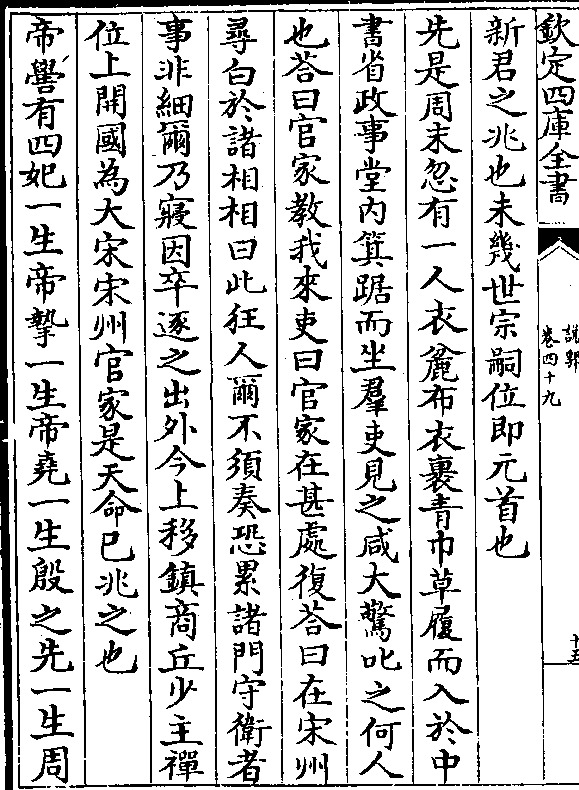 欽定四庫全書
說郛
卷四十九
十五
新君之兆也未幾世宗嗣位即元首也
先是周末忽有一人衣麄布衣裹青巾草履而入於中
書省政事堂内箕踞而坐羣吏見之咸大驚叱之何人
也荅曰官家教我來吏曰官家在甚處復荅曰在宋州
尋白於諸相相曰此狂人爾不須奏恐累諸門守衛者
事非細爾乃寢因卒逐之出外今上移鎮商丘少主禪
位上開國為大宋宋州官家是天命已兆之也
帝嚳有四妃一生帝摯一生帝堯一生殷之先一生周